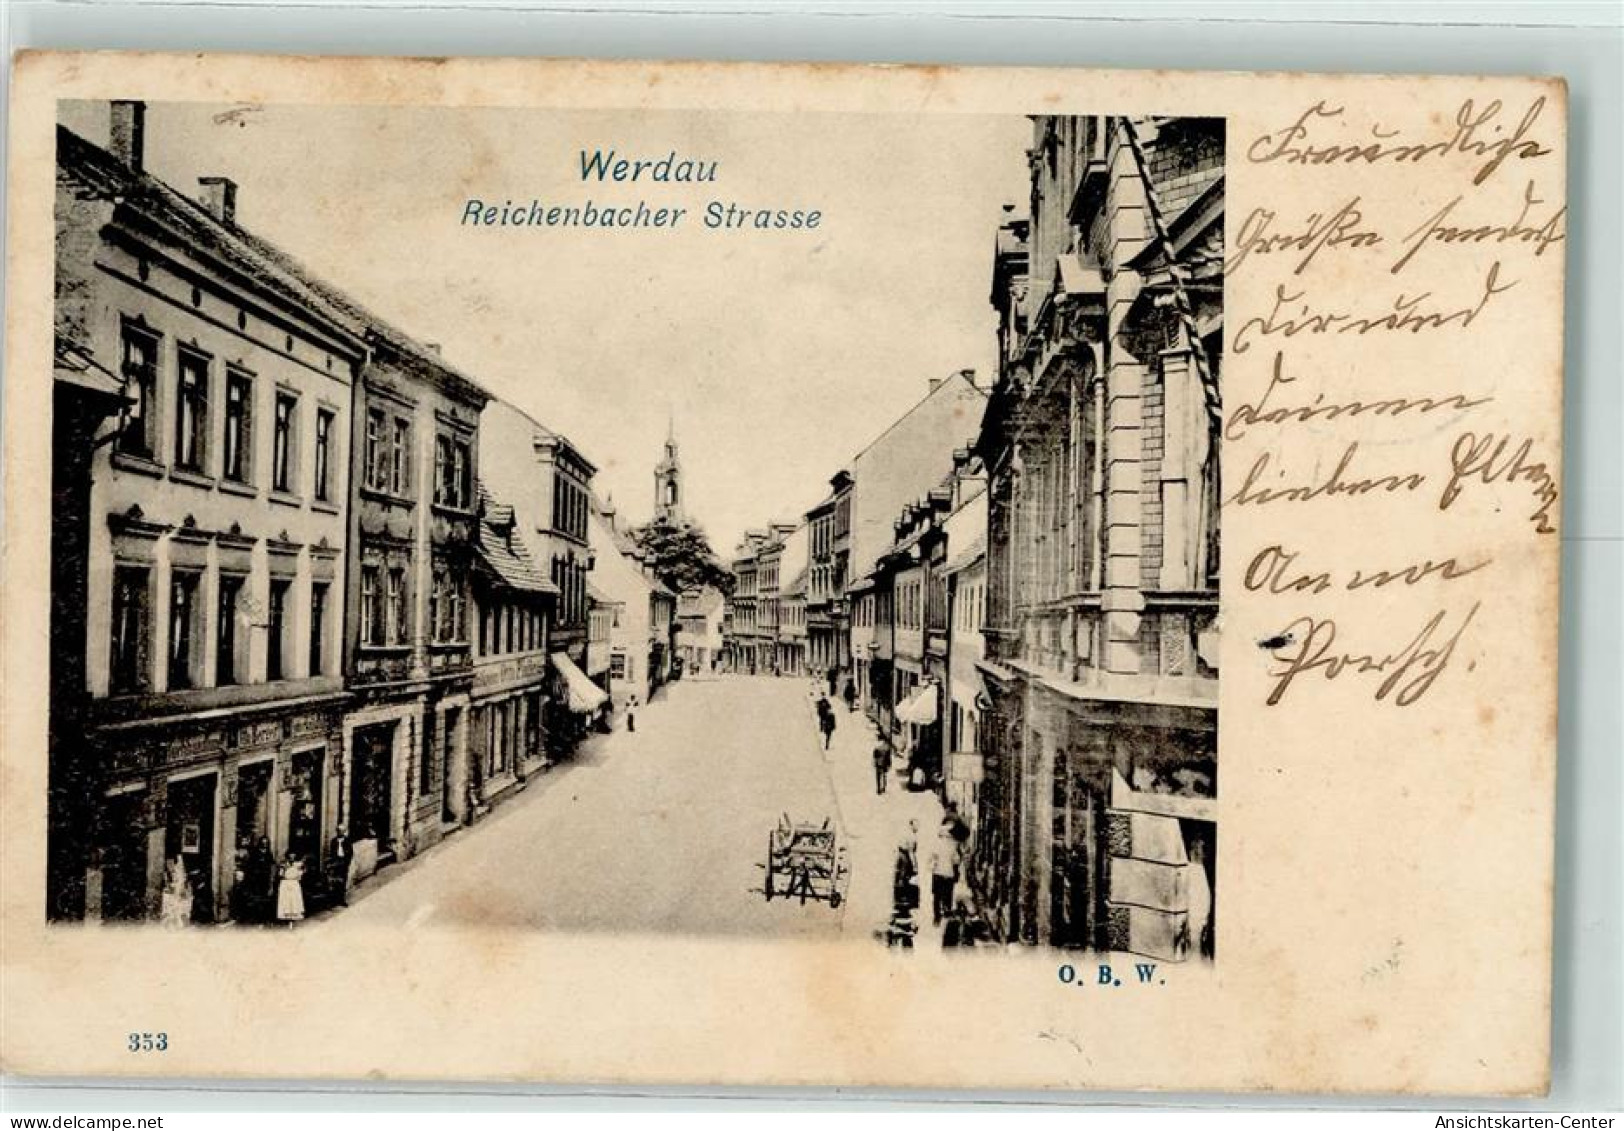 Werdau
Reichenbacher Strasse
Freundliche
Grüße sendet
Dir und
Deinen
lieben Eltern
Anna
Porsch.
O. B. W.
353
oldthing.de
Ansichtskarten-Center